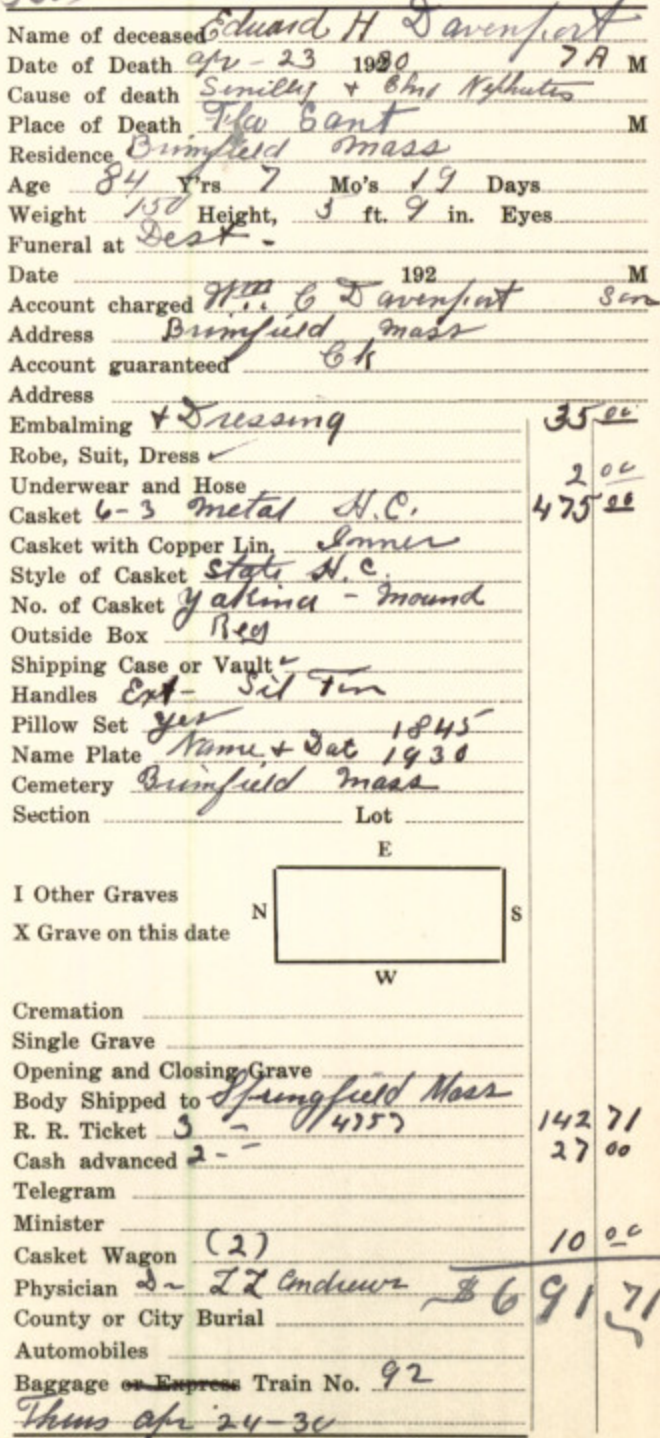 Name of deceased Eduard H Davenport
Date of Death apr - 23 1930 7 A M
Cause of death Senility + Chro Nephritis
Place of Death Fla Sant M
Residence Brimfield Mass
Age 84 Y'rs 7 Mo's 19 Days
Weight 150 Height, 5 ft. 9 in. Eyes
Funeral at Dest -
Date 192 M
Account charged Wm. C Davenport son
Address Brimfield Mass
Account guaranteed Ck
Address
Embalming + Dressing 35 00
Robe, Suit, Dress ✓
Underwear and Hose 2 00
Casket 6-3 Metal H.C. 475 00
Casket with Copper Lin. Inner
Style of Casket State H.C.
No. of Casket Yakima - Mound
Outside Box Reg
Shipping Case or Vault ✓
Handles Ext - Sil Fin
Pillow Set yes 1845
Name Plate Name + Dat 1930
Cemetery Brimfield Mass
Section Lot
E
I Other Graves
N S
X Grave on this date
W
Cremation
Single Grave
Opening and Closing Grave
Body Shipped to Springfield Mass
R. R. Ticket 3 - 4757 142 71
Cash advanced 2 - - 27 00
Telegram
Minister
Casket Wagon (2) 10 00
Physician Dr L L Andrews $691 71
County or City Burial
Automobiles
Baggage or Express Train No. 92
Thurs apr 24-30